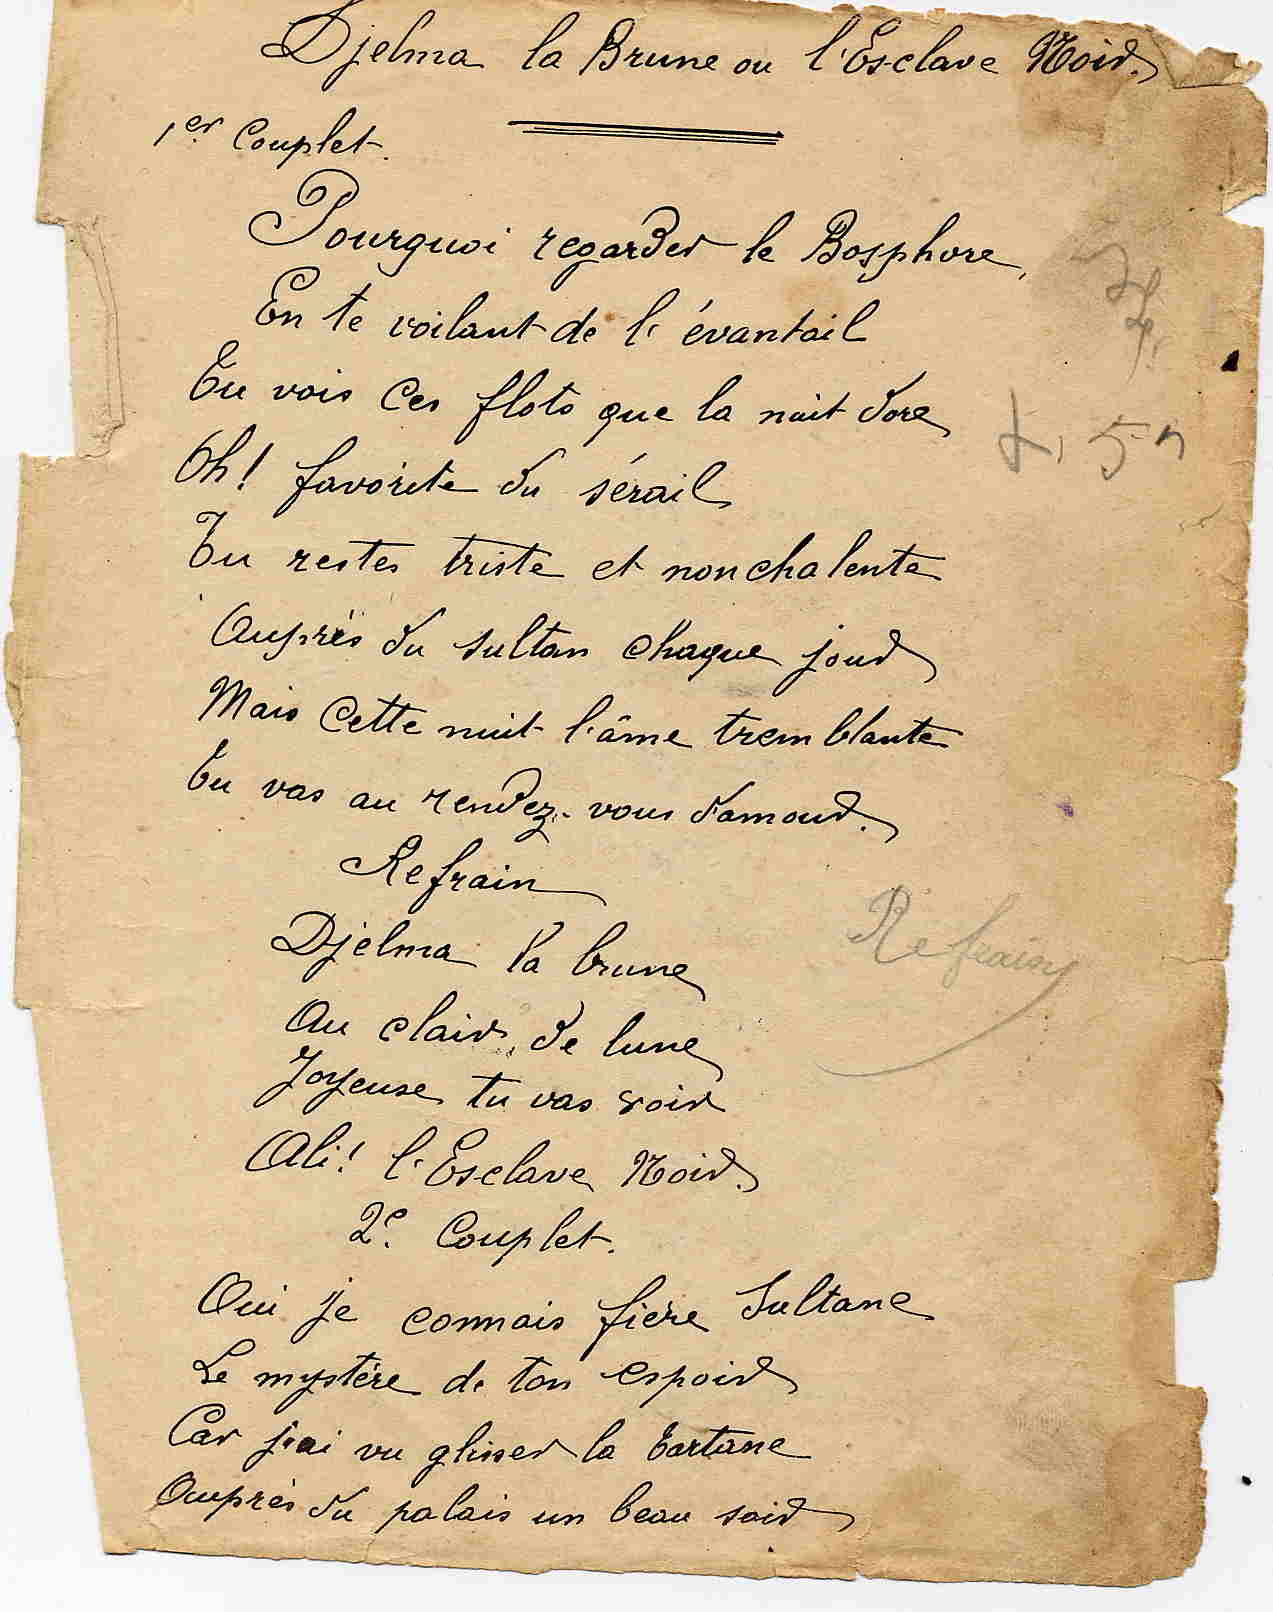 Djelma la Brune ou l'Esclave Noir.
1er Couplet.
Pourquoi regarder le Bosphore,
En te voilant de l'évantail
Tu vois ces flots que la nuit dore
Oh! favorite du sérail
Tu restes triste et nonchalente
Auprès du sultan chaque jour
Mais cette nuit l'âme tremblante
Tu vas au rendez-vous d'amour.
Refrain
Djelma la brune
Refrain
Au clair de lune
Joyeuse tu vas voir
Ali! l'Esclave Noir.
2e Couplet.
Oui je connais fière Sultane
Le mystère de ton espoir
Car j'ai vu glisser la tartane
Auprès du palais un beau soir